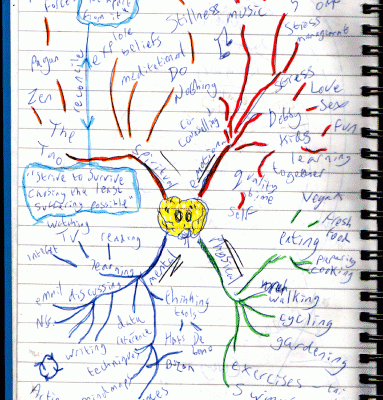 force
from it
Stillness
music
stress
management
love
self beliefs
Pagan
reconcile
meditational
Do
Nothing
Zen
The
Tao
co-
counselling
stress
Love
Sex
Debby
Fun
Kids
learning
together
spiritual
emotional
quality
time
self
"Serve to Survive
Choosing the least
suffering possible"
Vegan
Fresh
food
eating
preparing
cooking
watching
TV
reading
learning
mental
Physical
email discussing
NGs
writing
data
techniques
tools
Hats De
Bono
Buzan
mindmaps
walking
cycling
gardening
exercises - tai
Swim